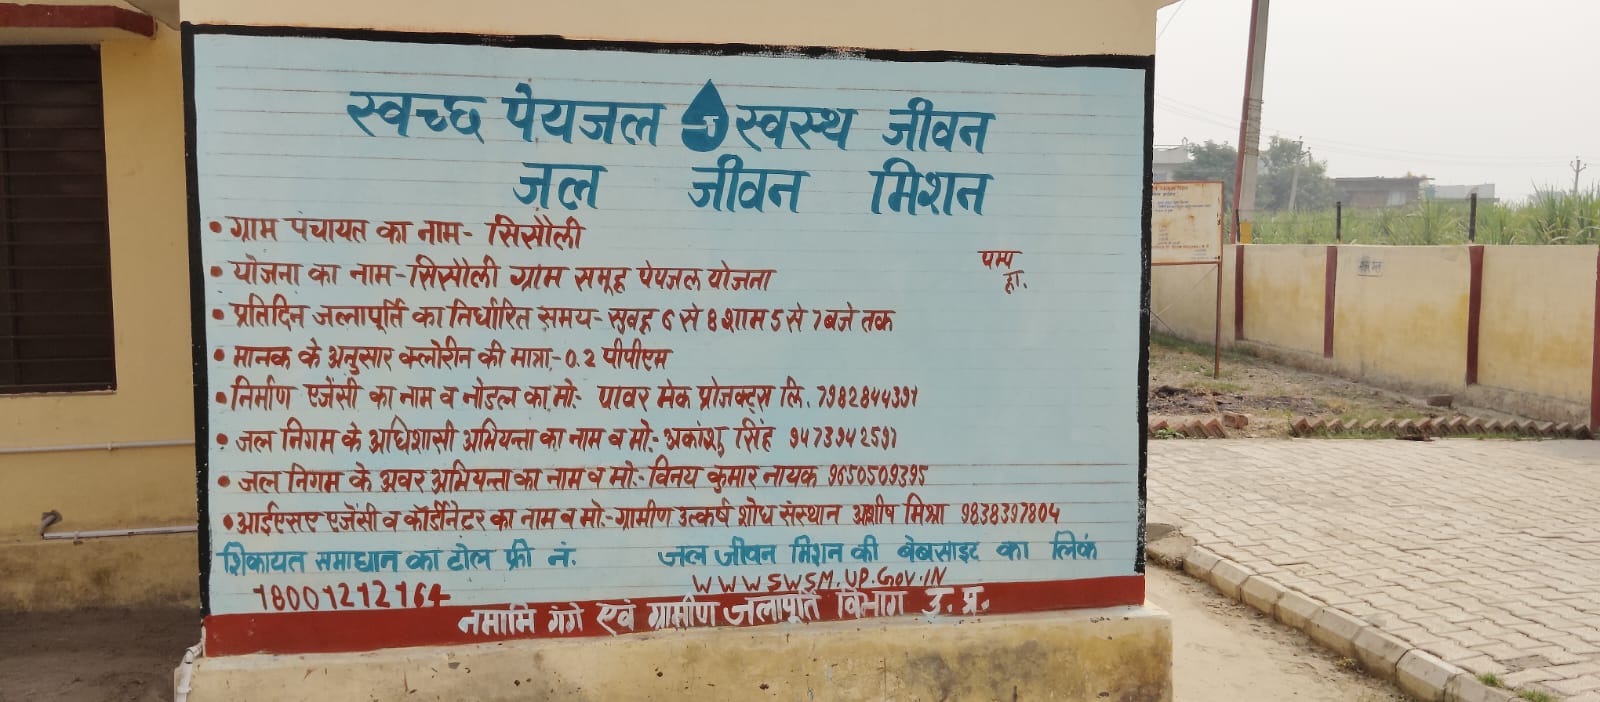 स्वच्छ पेयजल स्वस्थ जीवन
जल जीवन मिशन
• ग्राम पंचायत का नाम- सिसौली
पम्प
हा.
• योजना का नाम- सिसौली ग्राम समूह पेयजल योजना
• प्रतिदिन जलापूर्ति का निर्धारित समय- सुबह 6 से 8 शाम 5 से 7 बजे तक
• मानक के अनुसार क्लोरीन की मात्रा,- 0.2 पीपीएम
• निर्माण एजेंसी का नाम व नोडल का मो:- पावर मेक प्रोजक्ट्स लि. 7982844391
• जल निगम के अधिशासी अभियन्ता का नाम व मो:- अकांशु सिंह 9473942591
• जल निगम के अवर अभियन्ता का नाम व मो:- विनय कुमार नायक 9650509395
• आईएसए एजेंसी व कॉर्डीनेटर का नाम व मो:- ग्रामीण उत्कर्ष शोध संस्थान अशीष मिश्रा 9838397804
शिकायत समाधान का टोल फ्री नं. जल जीवन मिशन की बेबसाइट का लिंक
18001212164 WWWSWSM.UP.GOV.IN
नमामि गंगे एवं ग्रामीण जलापूर्ति विभाग उ.प्र.